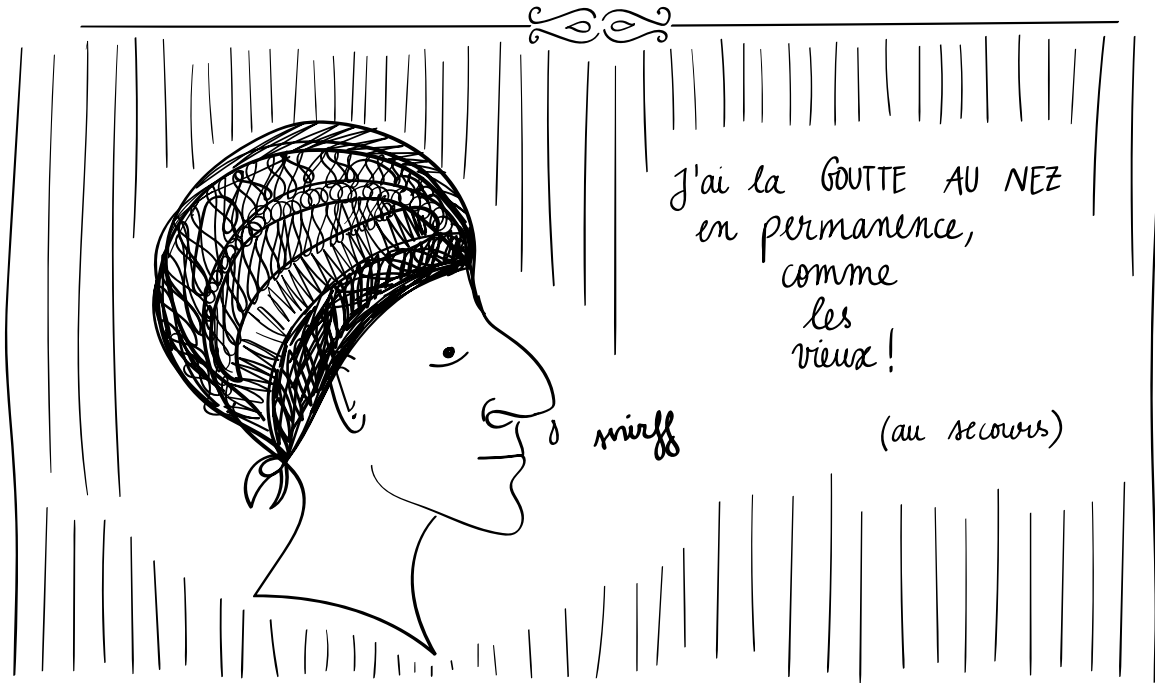 J'ai la GOUTTE AU NEZ
en permanence,
comme
les
vieux!
snirff
(au secours)